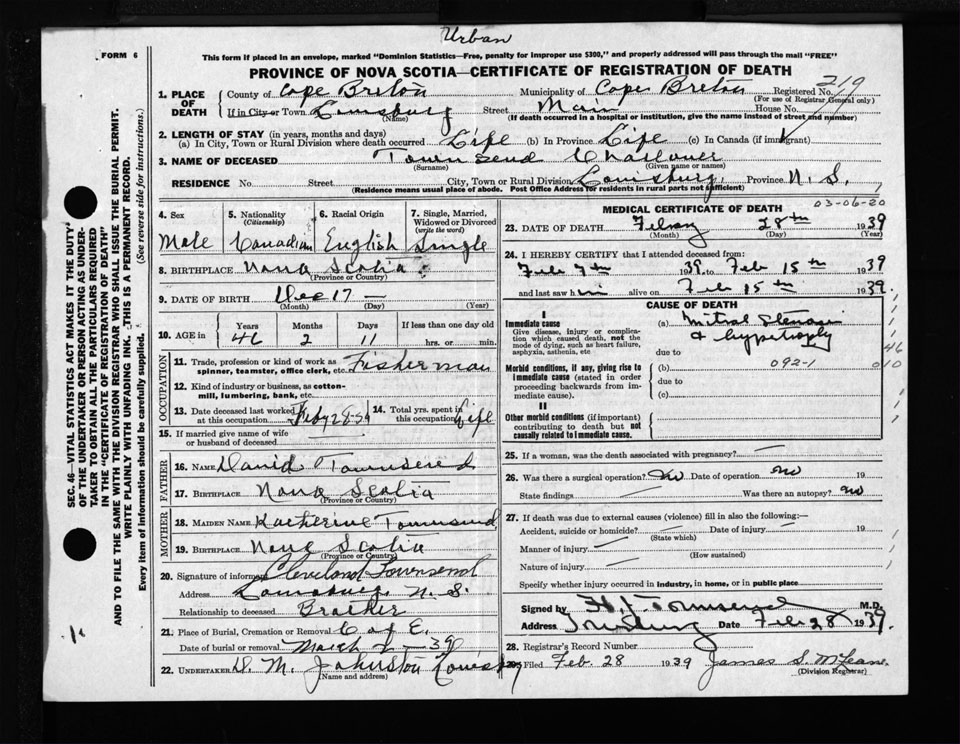 Urban
FORM 6
This form if placed in an envelope, marked "Dominion Statistics—Free, penalty for improper use $300," and properly addressed will pass through the mail "FREE"
PROVINCE OF NOVA SCOTIA—CERTIFICATE OF REGISTRATION OF DEATH
1. PLACE OF DEATH County of Cape Breton Municipality of Cape Breton Registered No. 219
(For use of Registrar General only)
If in City or Town Louisburg Street Main House No.
(Name) (If death occurred in a hospital or institution, give the name instead of street and number)
2. LENGTH OF STAY (in years, months and days)
(a) In City, Town or Rural Division where death occurred Life (b) In Province Life (c) In Canada (if immigrant)
3. NAME OF DECEASED Townsend
(Surname) (Given name or names)
RESIDENCE No. Street City, Town or Rural Division Louisburg, Province N. S.
(Residence means usual place of abode. Post Office Address for residents in rural parts not sufficient)
4. Sex 5. Nationality (Citizenship) 6. Racial Origin 7. Single, Married, Widowed or Divorced (write the word)
Male Canadian English Single
8. BIRTHPLACE Nova Scotia
(Province or Country)
9. DATE OF BIRTH Dec 17 —
(Month) (Day) (Year)
10. AGE in Years Months Days If less than one day old
46 2 11 hrs. or min.
OCCUPATION
11. Trade, profession or kind of work as spinner, teamster, office clerk, etc. Fisherman
12. Kind of industry or business, as cotton-mill, lumbering, bank, etc.
13. Date deceased last worked at this occupation 14. Total yrs. spent in this occupation Life
15. If married give name of wife or husband of deceased
FATHER
16. NAME David Townsend
17. BIRTHPLACE Nova Scotia
(Province or Country)
MOTHER
18. MAIDEN NAME Katherine Townsend
19. BIRTHPLACE Nova Scotia
(Province or Country)
20. Signature of informant Cleveland Townsend
Address Louisburg N. S.
Relationship to deceased Brother
21. Place of Burial, Cremation or Removal C of E.
Date of burial or removal March 39
22. UNDERTAKER D. M. Johnston Louisburg
(Name and address)
MEDICAL CERTIFICATE OF DEATH 03-06-20
23. DATE OF DEATH 28th 1939
(Month) (Day) (Year)
24. I HEREBY CERTIFY that I attended deceased from:
Feb 7th 1939 to Feb 15th 1939
and last saw him alive on Feb 15th 1939.
CAUSE OF DEATH
I
Immediate cause
Give disease, injury or complication which caused death, not the mode of dying, such as heart failure, asphyxia, asthenia, etc
(a) Mitral Stenosis
& hypertrophy
due to
Morbid conditions, if any, giving rise to immediate cause (stated in order proceeding backwards from immediate cause).
(b) 092-1
due to
(c)
46
010
II
Other morbid conditions (if important) contributing to death but not causally related to immediate cause.
25. If a woman, was the death associated with pregnancy? —
26. Was there a surgical operation? No Date of operation no 19
State findings Was there an autopsy? no
27. If death was due to external causes (violence) fill in also the following:—
Accident, suicide or homicide? — Date of injury — 19
(State which)
Manner of injury —
(How sustained)
Nature of injury —
Specify whether injury occurred in industry, in home, or in public place
Signed by Townsend M.D.
Address Louisburg Date Feb 28 1939.
28. Registrar's Record Number
29. Filed Feb. 28 1939 James S. McLean
(Division Registrar)
SEC. 46—VITAL STATISTICS ACT MAKES IT THE DUTY OF THE UNDERTAKER OR PERSON ACTING AS UNDERTAKER TO OBTAIN ALL THE PARTICULARS REQUIRED IN THE "CERTIFICATE OF REGISTRATION OF DEATH"
AND TO FILE THE SAME WITH THE DIVISION REGISTRAR WHO SHALL ISSUE THE BURIAL PERMIT.
WRITE PLAINLY WITH UNFADING INK. THIS IS A PERMANENT RECORD.
Every item of information should be carefully supplied. (See reverse side for instructions.)